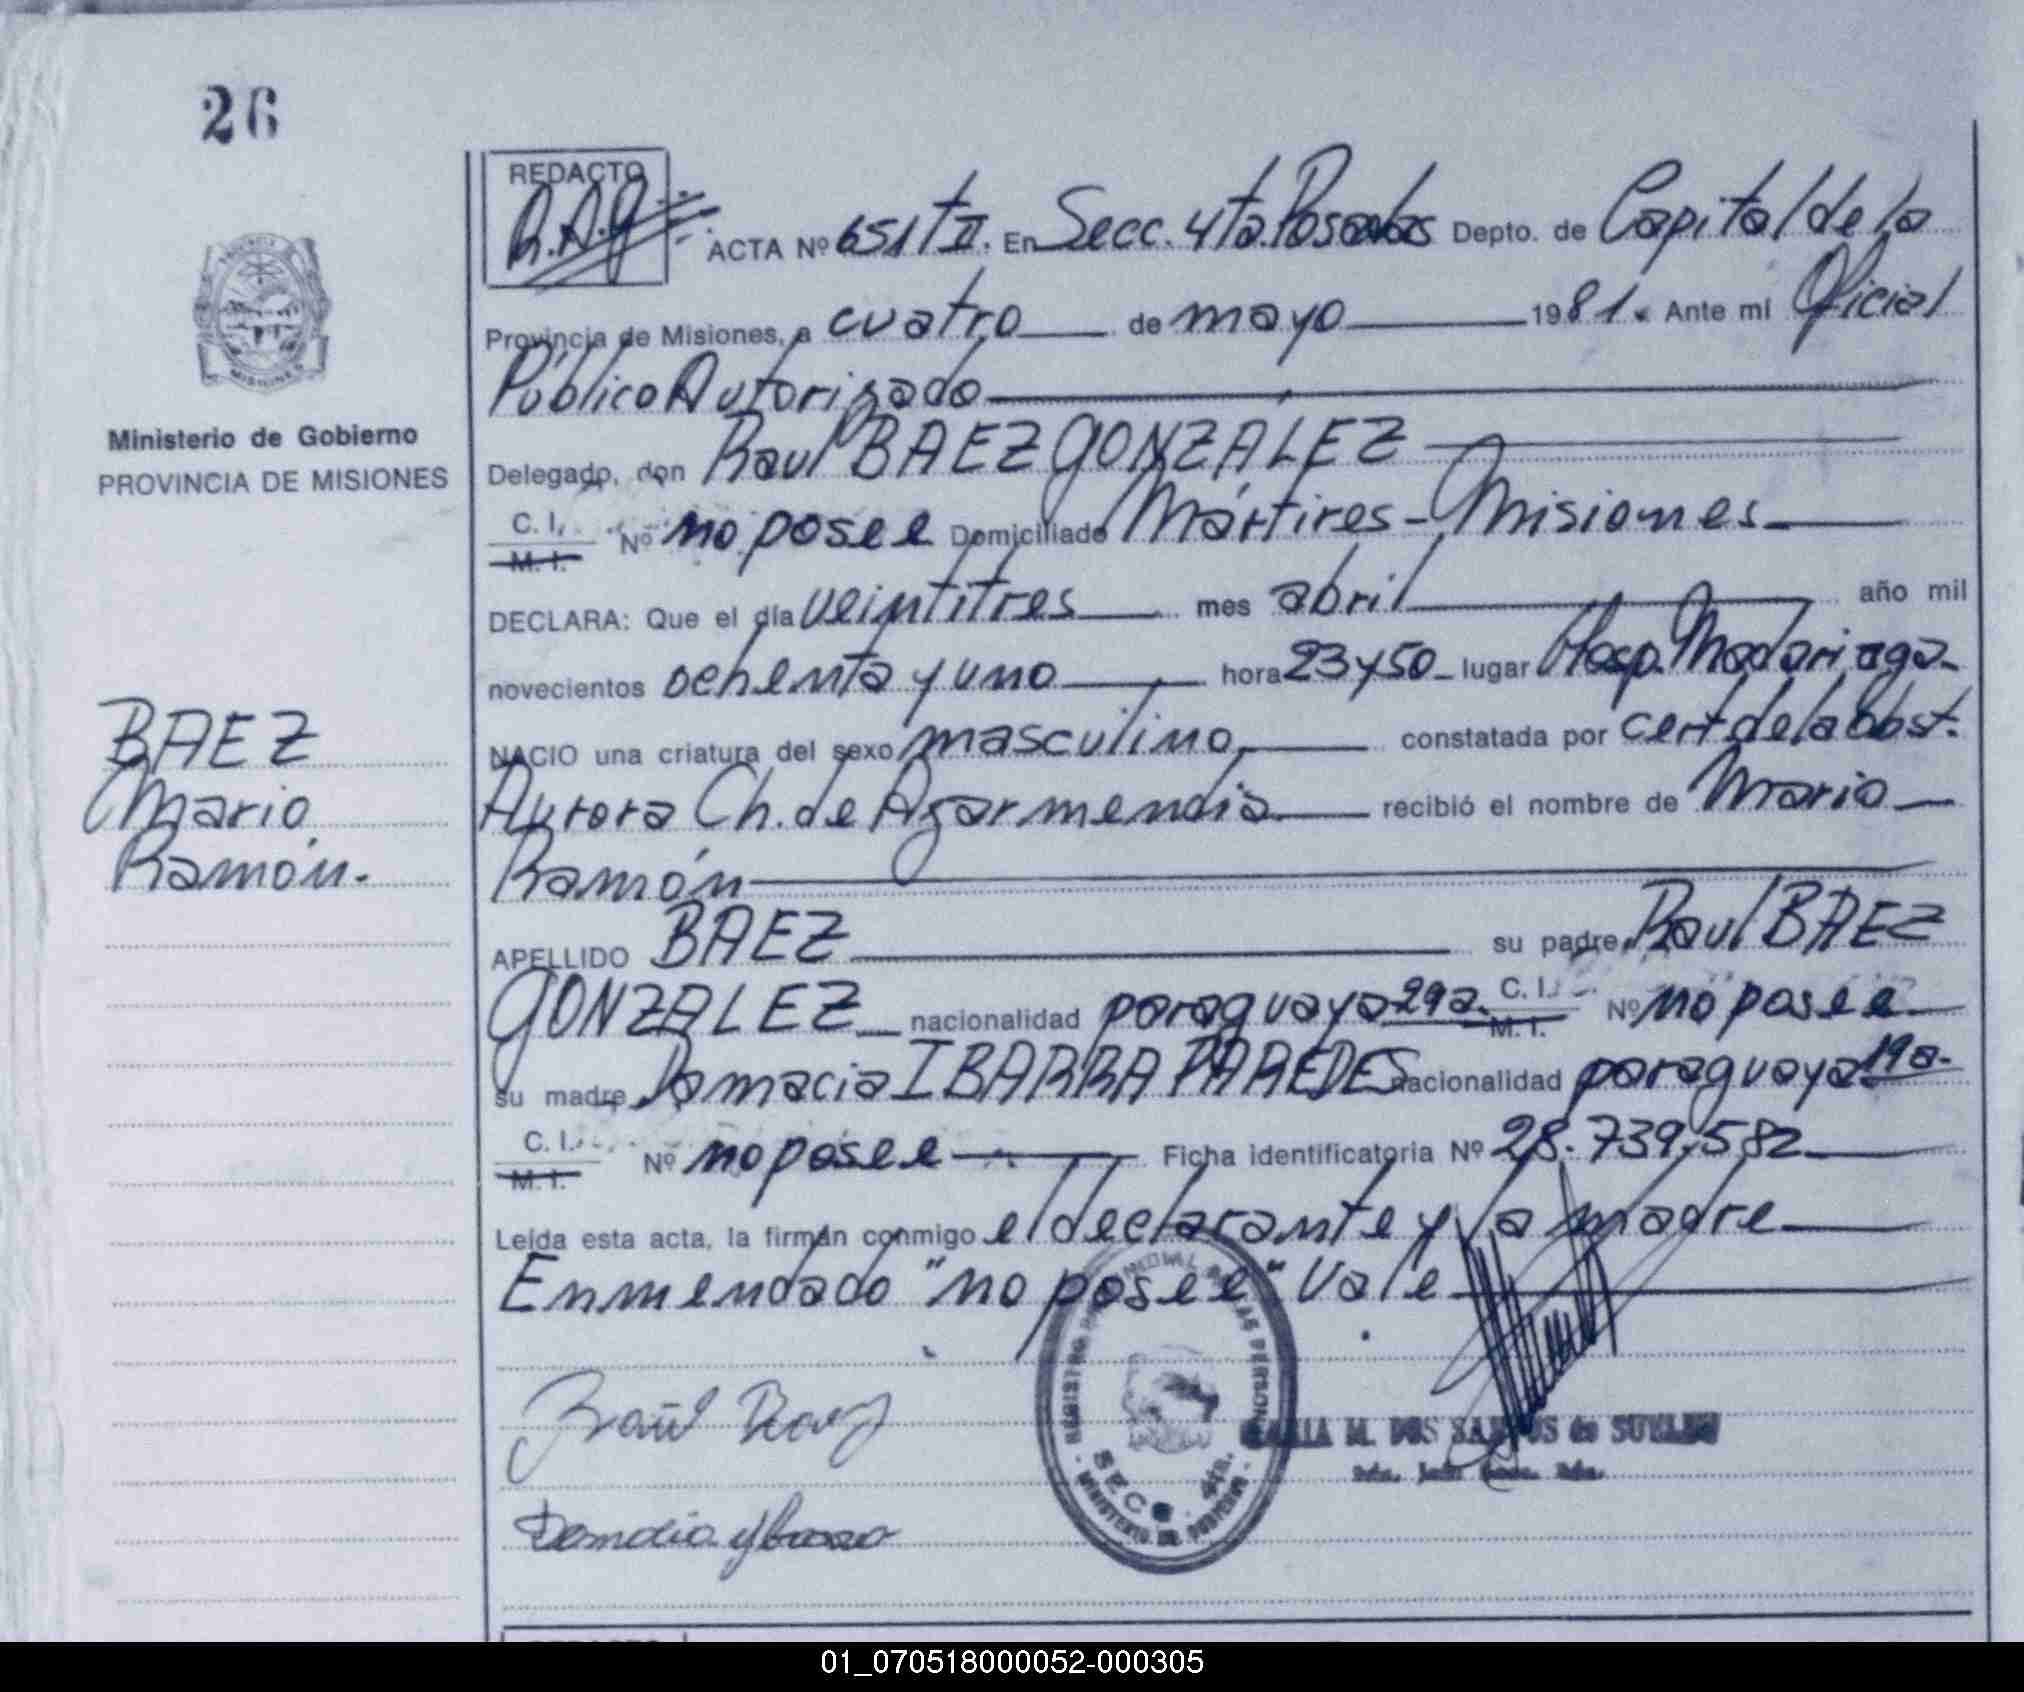 26
REDACTO
R.A.G
ACTA Nº 651 tºII. En Secc. 4ta. Posadas Depto. de Capital de la
Provincia de Misiones, a cuatro de mayo 1981. Ante mí Oficial
Público Autorizado
Delegado, don Raul BAEZ GONZÁLEZ
C. I. M. I. Nº no posee Domiciliado Mártires - Misiones
DECLARA: Que el día veintitres mes abril año mil
novecientos ochenta y uno hora 23 y 50 lugar Hosp. Madariaga
NACIO una criatura del sexo masculino, constatada por cert de la obst.
Aurora Ch. de Azarmendia recibió el nombre de Mario
Ramón
APELLIDO BAEZ su padre, Raul BAEZ
GONZALEZ nacionalidad paraguaya 29a. C. I. M. I. Nº no posee
su madre, Damacia IBARRA PAREDES nacionalidad paraguaya 19a.
C. I. M. I. Nº no posee Ficha identificatoria Nº 28.739.582
Leída esta acta, la firman conmigo el declarante y la madre
Enmendado "no posee" vale
Ministerio de Gobierno
PROVINCIA DE MISIONES
PROVINCIA
MISIONES
BAEZ
Mario
Ramón.
Raúl Baez
REGISTRO PROVINCIAL DE LAS PERSONAS
SECC. 4ta.
MINISTERIO DE GOBIERNO
MARIA M. DOS SANTOS de
01_070518000052-000305